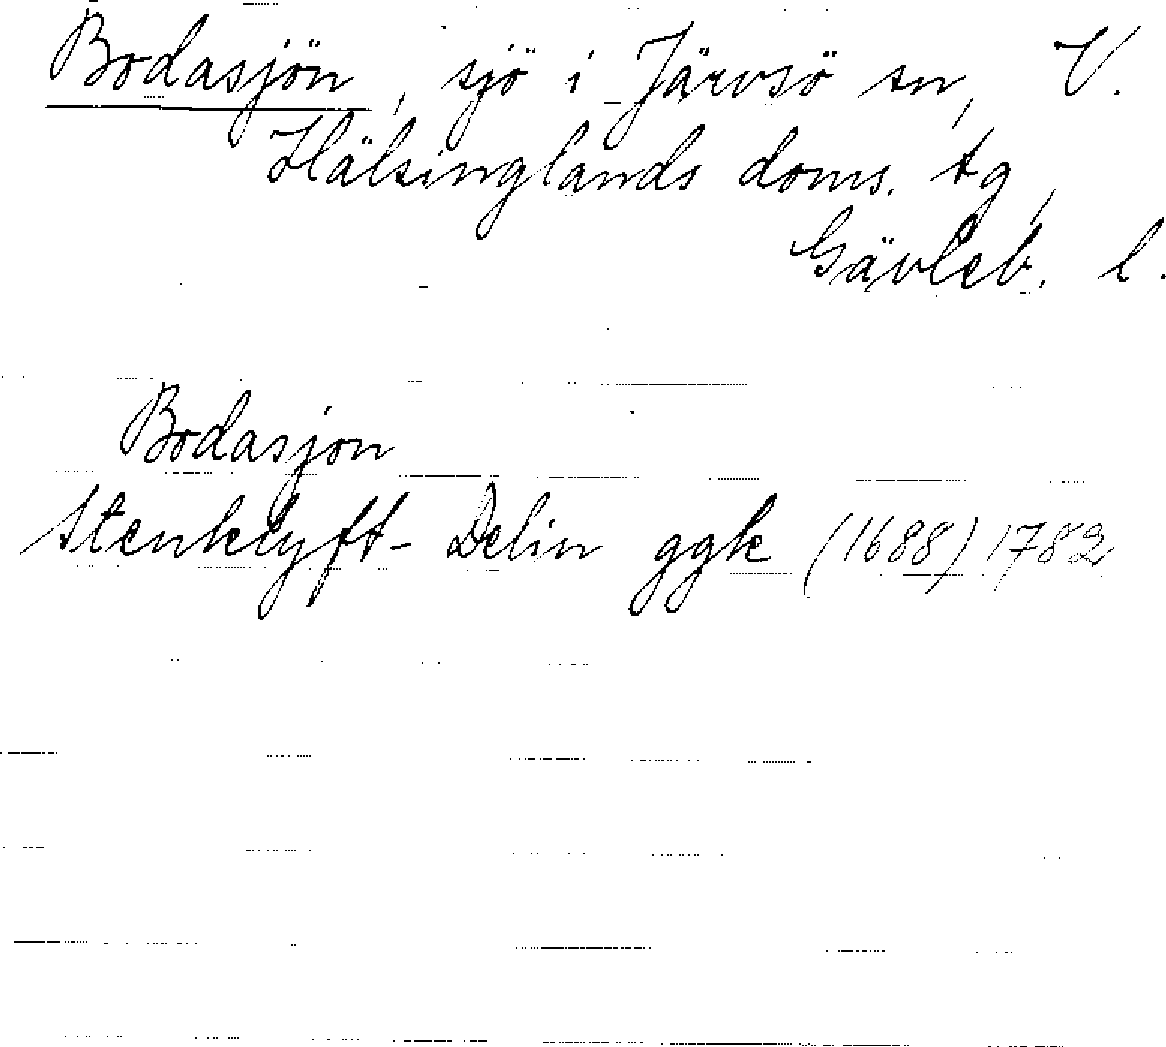 Bodasjön, sjö i Järvsö sn, V.
Hälsinglands doms. tg,
Gävleb. l.
Bodasjon
Stenklyft- Delin ggk (1688) 1782